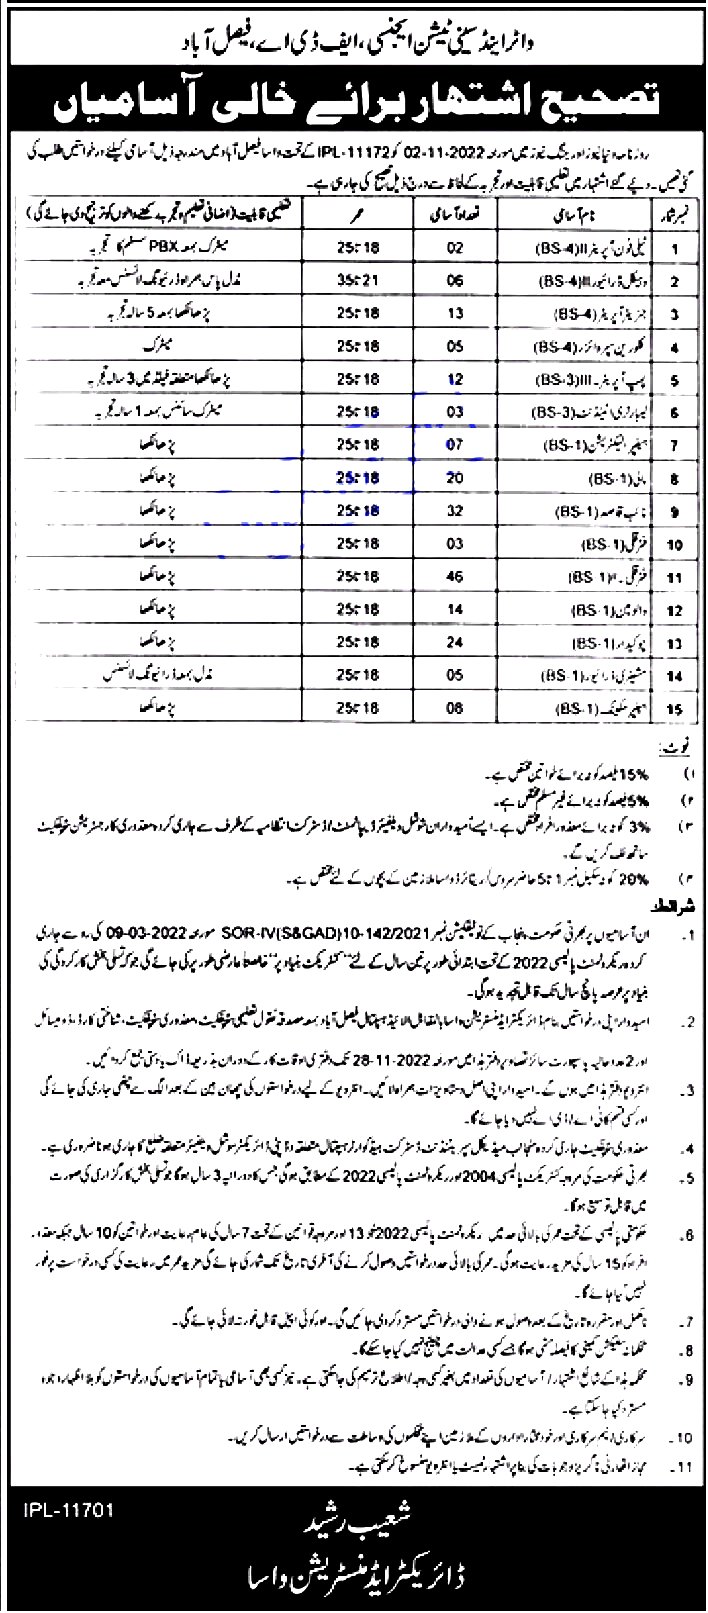 واٹر اینڈ سینی ٹیشن ایجنسی، ایف ڈی اے، فیصل آباد
تصحیح اشتہار برائے خالی آسامیاں
روزنامہ دنیا نیوز اور جنگ نیوز میں مورخہ 02-11-2022 کو IPL-11172 کے تحت واسا فیصل آباد میں مندرجہ ذیل آسامی کیلئے درخواستیں طلب کی
گئی تھیں۔ دیئے گئے اشتہار میں تعلیمی قابلیت اور تجربہ کے لحاظ سے درج ذیل تصحیح کی جارہی ہے۔
نمبر شمار نام آسامی تعداد آسامی عمر تعلیمی قابلیت (اضافی تعلیم و تجربہ رکھنے والوں کو ترجیح دی جائے گی)
1 ٹیلی فون آپریٹر II (BS-4) 02 18 تا 25 میٹرک بمعہ PBX سسٹم کا تجربہ
2 وہیکل ڈرائیور III (BS-4) 06 21 تا 35 مڈل پاس ہمراہ ڈرائیونگ لائسنس معہ تجربہ
3 جنریٹر آپریٹر (BS-4) 13 18 تا 25 پڑھا لکھا بمعہ 5 سالہ تجربہ
4 کلورین سپروائزر (BS-4) 05 18 تا 25 میٹرک
5 پمپ آپریٹر۔III (BS-3) 12 18 تا 25 پڑھا لکھا متعلقہ فیلڈ میں 3 سالہ تجربہ
6 لیبارٹری اٹینڈنٹ (BS-3) 03 18 تا 25 میٹرک سائنس بمعہ 1 سالہ تجربہ
7 ہیلپر الیکٹریشن (BS-1) 07 18 تا 25 پڑھا لکھا
8 مالی (BS-1) 20 18 تا 25 پڑھا لکھا
9 نائب قاصد (BS-1) 32 18 تا 25 پڑھا لکھا
10 فیرقلی (BS-1) 03 18 تا 25 پڑھا لکھا
11 فیرقلی۔II (BS-1) 46 18 تا 25 پڑھا لکھا
12 والومین (BS-1) 14 18 تا 25 پڑھا لکھا
13 چوکیدار (BS-1) 24 18 تا 25 پڑھا لکھا
14 مشینری ڈرائیور (BS-1) 05 18 تا 25 مڈل بمعہ ڈرائیونگ لائسنس
15 ہیلپر مکینک (BS-1) 08 18 تا 25 پڑھا لکھا
نوٹ:
۱) 15% فیصد کوٹہ برائے خواتین مختص ہے۔
۲) 5% فیصد کوٹہ برائے غیر مسلم مختص ہے۔
۳) 3% کوٹہ برائے معذور افراد مختص ہے۔ ایسے امیدواران سوشل ویلفیئر ڈیپارٹمنٹ / ڈسٹرکٹ انتظامیہ کے طرف سے جاری کردہ معذوری کا رجسٹریشن سرٹیفکیٹ
ساتھ لف کریں گے۔
۴) 20% کوٹہ سکیل نمبر 1 تا 5 حاضر سروس / ریٹائرڈ واسا ملازمین کے بچوں کے لئے مختص ہے۔
شرائط
1۔ ان آسامیوں پر بھرتی حکومت پنجاب کے نوٹیفکیشن نمبر SOR-IV(S&GAD)10-142/2021 مورخہ 09-03-2022 کی رو سے جاری
کردہ ریکروٹمنٹ پالیسی 2022 کے تحت ابتدائی طور پر تین سال کے لئے "کنٹریکٹ بنیاد پر" خالصتاً عارضی طور پر کی جائے گی جو کہ تسلی بخش کارکردگی کی
بنیاد پر عرصہ پانچ سال تک قابل تجدید ہوگی۔
2۔ امیدوار اپنی درخواستیں بنام ڈائریکٹر ایڈمنسٹریشن واسا بالمقابل الائیڈ ہسپتال فیصل آباد بمعہ مصدقہ نقول تعلیمی سرٹیفکیٹ، معذوری سرٹیفکیٹ، شناختی کارڈ، ڈومیسائل
اور 2 عدد حالیہ پاسپورٹ سائز تصاویر دفتر ہذا میں مورخہ 28-11-2022 تک دفتری اوقات کار کے دوران بذریعہ ڈاک یا دستی جمع کروائیں۔
3۔ انٹرویو دفتر ہذا میں ہوں گے۔ امیدوار اپنی اصل دستاویزات ہمراہ لائیں۔ انٹرویو کے لیے درخواستوں کی چھان بین کے بعد الگ سے چٹھی جاری کی جائے گی
اور کسی قسم کا ٹی اے / ڈی اے نہیں دیا جائے گا۔
4۔ معذوری سرٹیفکیٹ جاری کردہ منجانب میڈیکل سپرنٹنڈنٹ ڈسٹرکٹ ہیڈ کوارٹر ہسپتال متعلقہ و ڈپٹی ڈائریکٹر سوشل ویلفیئر متعلقہ ضلع کا جاری ہونا ضروری ہے۔
5۔ بھرتی حکومت کی مروجہ کنٹریکٹ پالیسی 2004 اور ریکروٹمنٹ پالیسی 2022 کے مطابق ہوگی جس کا دورانیہ 3 سال ہوگا جو تسلی بخش کارگزاری کی صورت
میں قابل توسیع ہوگا۔
6۔ حکومتی پالیسی کے تحت عمر کی بالائی حد میں ریکروٹمنٹ پالیسی 2022 کلاز 13 اور مروجہ قوانین کے تحت 7 سال کی عام رعایت اور خواتین کو 10 سال جبکہ معذور
افراد کو 15 سال کی مزید رعایت ہوگی۔ عمر کی بالائی حد درخواستیں وصول کرنے کی آخری تاریخ تک شمار کی جائے گی مزید عمر میں رعایت کی کسی درخواست پر غور
نہیں کیا جائے گا۔
7۔ نامکمل اور مقررہ تاریخ کے بعد وصول ہونے والی درخواستیں مسترد کر دی جائیں گی۔ اور کوئی اپیل قابل غور نہ لائی جائے گی۔
8۔ محکمانہ سلیکشن کمیٹی کا فیصلہ حتمی ہوگا جسے کسی عدالت میں چیلنج نہیں کیا جا سکے گا۔
9۔ محکمہ ہذا کے شائع اشتہار / آسامیوں کی تعداد میں بغیر کسی وجہ / اطلاع ترمیم کی جا سکتی ہے۔ نیز کسی بھی آسامی یا تمام آسامیوں کی درخواستوں کو بلا اظہار وجوہ
مسترد کیا جا سکتا ہے۔
10۔ سرکاری / نیم سرکاری اور خودمختار اداروں کے ملازمین اپنے محکموں کی وساطت سے درخواستیں ارسال کریں۔
11۔ مجاز اتھارٹی ناگزیر وجوہات کی بنا پر اشتہار ٹیسٹ یا انٹرویو منسوخ کر سکتی ہے۔
IPL-11701
شعیب رشید
ڈائریکٹر ایڈمنسٹریشن واسا